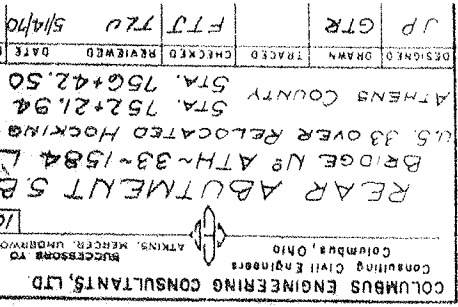 COLUMBUS ENGINEERING CONSULTANTS, LTD.
Consulting Civil Engineers
Columbus, Ohio
SUCCESSORS TO
ATKINS, MERCER, UNDERWO
REAR ABUTMENT S.B
BRIDGE Nº ATH~33~1584 L
U.S. 33 OVER RELOCATED HOCKING
ATHENS COUNTY
STA. 752+21.94
STA. 756+42.50
DESIGNED DRAWN TRACED CHECKED REVIEWED DATE
JP GTR FTJ 5/14/70